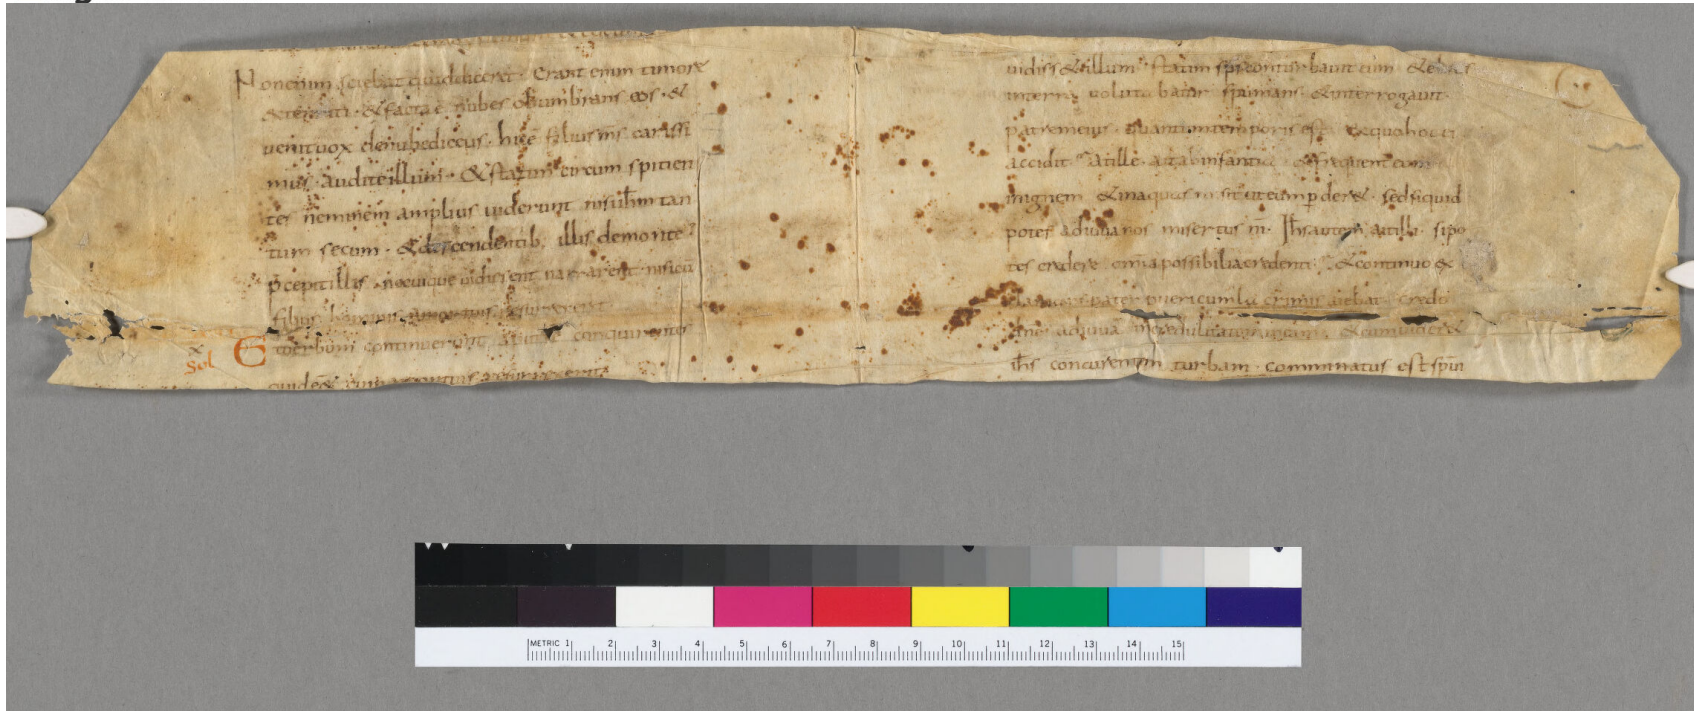 Non enim sciebat quid diceret · Erant enim timore
&territi · &facta ē nubes obumbrans eos · &
venit vox denube dicens · hic ē filius m̄s carissi
mus · audite illum · &statim circum spicien
tes neminem amplius viderunt nisi ih̄m tan
tum secum · &descendentib; illis demonte
p̄cepit illis · necuique vidissent narrarent · nisi cū
filius hominis amortuis resurrexerit
Sol Etverbum continuerunt conquirentes
quid ē& cum amortuis resurrexerit
vidiss& illum · statim sp̄s conturbavit eum &
interrā volutabatur spumans · &interrogavit ·
patrem eius · quantum temporis est exquo hoc ei
accidit · atille · ait abinfantia · &frequenter eum
inignem &inaquas misit uteum p̄der& · sed siquid
potes adiuva nos misertus n̄i · Ih̄s autem ait illi · sipo
tes credere om̄a possibilia credenti · &continuo &
pater puericum lacrimis aiebat · credo
adiuva incredulitatem meam · &cum vider&
ih̄s concurentem turbam · comminatus est sp̄ui
METRIC 1 2 3 4 5 6 7 8 9 10 11 12 13 14 15